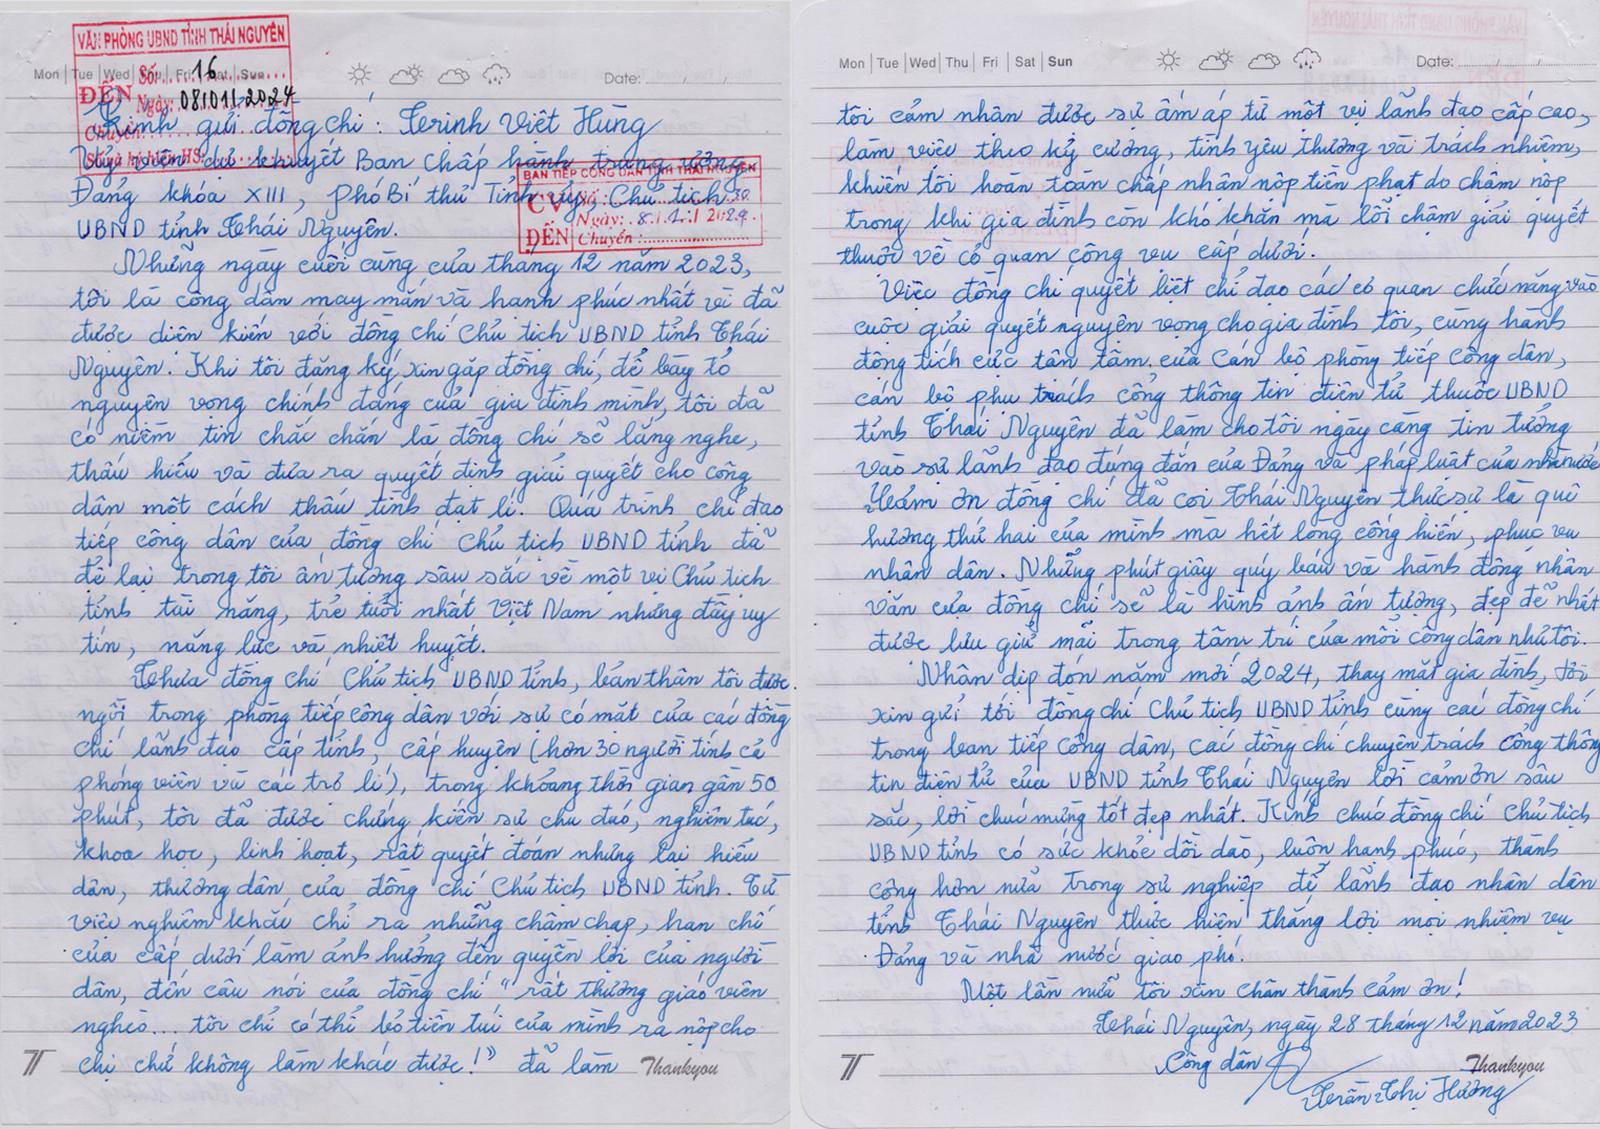 VĂN PHÒNG UBND TỈNH THÁI NGUYÊN
Mon Tue Wed Fri Sat Sun
Date:
ĐẾN
Số: 16
Ngày: 08/01/2024
Chuyển:
Số và ký hiệu HS:
Kính gửi đồng chí: Trịnh Việt Hùng
Uỷ viên dự khuyết Ban Chấp hành trung ương
Đảng khóa XIII, phó Bí thư Tỉnh ủy, Chủ tịch
UBND tỉnh Thái Nguyên.
BAN TIẾP CÔNG DÂN TỈNH THÁI NGUYÊN
CV ĐẾN
Số: 30
Ngày: 8/1/2024
Chuyển:
Những ngày cuối cùng của tháng 12 năm 2023,
tôi là công dân may mắn và hạnh phúc nhất vì đã
được diện kiến với đồng chí Chủ tịch UBND tỉnh Thái
Nguyên. Khi tôi đăng ký xin gặp đồng chí, để bày tỏ
nguyện vọng chính đáng của gia đình mình, tôi đã
có niềm tin chắc chắn là đồng chí sẽ lắng nghe,
thấu hiểu và đưa ra quyết định giải quyết cho công
dân một cách thấu tình đạt lí. Quá trình chỉ đạo
tiếp công dân của đồng chí Chủ tịch UBND tỉnh đã
để lại trong tôi ấn tượng sâu sắc về một vị Chủ tịch
tỉnh tài năng, trẻ tuổi nhất Việt Nam nhưng đầy uy
tín, năng lực và nhiệt huyết.
Thưa đồng chí Chủ tịch UBND tỉnh, bản thân tôi được
ngồi trong phòng tiếp công dân với sự có mặt của các đồng
chí lãnh đạo cấp tỉnh, cấp huyện (hơn 30 người tính cả
phóng viên và các trợ lí), trong khoảng thời gian gần 50
phút, tôi đã được chứng kiến sự chu đáo, nghiêm túc,
khoa học, linh hoạt, rất quyết đoán nhưng lại hiểu
dân, thương dân của đồng chí Chủ tịch UBND tỉnh. Từ
việc nghiêm khắc chỉ ra những chậm chạp, hạn chế
của cấp dưới làm ảnh hưởng đến quyền lợi của người
dân, đến câu nói của đồng chí "rất thương giáo viên
nghèo... tôi chỉ có thể bỏ tiền túi của mình ra nộp cho
chị chứ không làm khác được!" đã làm
Thankyou
Mon Tue Wed Thu Fri Sat Sun
Date:
tôi cảm nhận được sự ấm áp từ một vị lãnh đạo cấp cao,
làm việc theo kỷ cương, tình yêu thương và trách nhiệm,
khiến tôi hoàn toàn chấp nhận nộp tiền phạt do chậm nộp
trong khi gia đình còn khó khăn mà lỗi chậm giải quyết
thuộc về cơ quan công vụ cấp dưới.
Việc đồng chí quyết liệt chỉ đạo các cơ quan chức năng vào
cuộc giải quyết nguyện vọng cho gia đình tôi, cùng hành
động tích cực tận tâm của cán bộ phòng tiếp công dân,
cán bộ phụ trách cổng thông tin điện tử thuộc UBND
tỉnh Thái Nguyên đã làm cho tôi ngày càng tin tưởng
vào sự lãnh đạo đúng đắn của Đảng và pháp luật của nhà nước
Cảm ơn đồng chí đã coi Thái Nguyên thực sự là quê
hương thứ hai của mình mà hết lòng cống hiến, phục vụ
nhân dân. Những phút giây quý báu và hành động nhân
văn của đồng chí sẽ là hình ảnh ấn tượng, đẹp đẽ nhất
được lưu giữ mãi trong tâm trí của mỗi công dân như tôi.
Nhân dịp đón năm mới 2024, thay mặt gia đình, tôi
xin gửi tới đồng chí Chủ tịch UBND tỉnh cùng các đồng chí
trong ban tiếp công dân, các đồng chí chuyên trách cổng thông
tin điện tử của UBND tỉnh Thái Nguyên lời cảm ơn sâu
sắc, lời chúc mừng tốt đẹp nhất. Kính chúc đồng chí Chủ tịch
UBND tỉnh có sức khỏe dồi dào, luôn hạnh phúc, thành
công hơn nữa trong sự nghiệp để lãnh đạo nhân dân
tỉnh Thái Nguyên thực hiện thắng lợi mọi nhiệm vụ
Đảng và nhà nước giao phó.
Một lần nữa tôi xin chân thành cảm ơn!
Thái Nguyên, ngày 28 tháng 12 năm 2023
Công dân
Thankyou
Trần Thị Hương